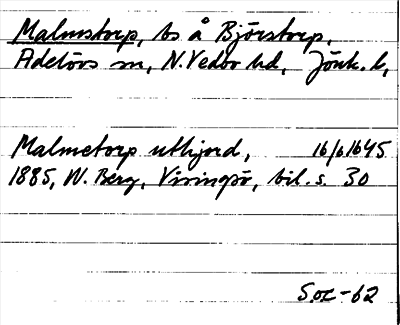 Malmstorp, bs å Björstorp,
Adelövs sn, N. Vedbo hd, Jönk. l,
Malmetorp uthjord, 16/6 1645
1885, W. Berg, Visingsö, bil. s. 30
Soc-62